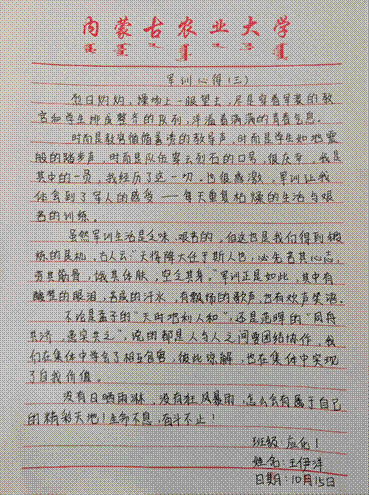 内蒙古农业大学
军训心得（三）
烈日灼灼，操场上一眼望去，尽是穿着军装的教
官和学生排成整齐的队列，洋溢着满满的青春气息。
时而是教官循循善诱的教导声，时而是学生如地震
般的踏步声，时而是队伍穿云裂石的口号，很庆幸，我是
其中的一员，我经历了这一切，也很感激，军训让我
体会到了军人的感受——每天重复枯燥的生活与艰
苦的训练。
虽然军训生活是乏味、艰苦的，但这也是我们得到锻
炼的良机，古人云“天将降大任于斯人也，必先苦其心志，
劳其筋骨，饿其体肤，空乏其身。”军训正是如此，其中有
酸楚的眼泪，苦咸的汗水，有飘扬的歌声，也有欢声笑语。
不论是孟子的“天时地利人和”，还是范晔的“同舟
共济，患实共之”，说的都是人与人之间要团结协作，我
们在集体中学会了相互包容，彼此谅解，也在集体中实现
了自我价值。
没有日晒雨淋，没有狂风暴雨，怎么会有属于自己
的精彩天地！生命不息，奋斗不止！
班级：应化1
姓名：王伊洋
日期：10月15日